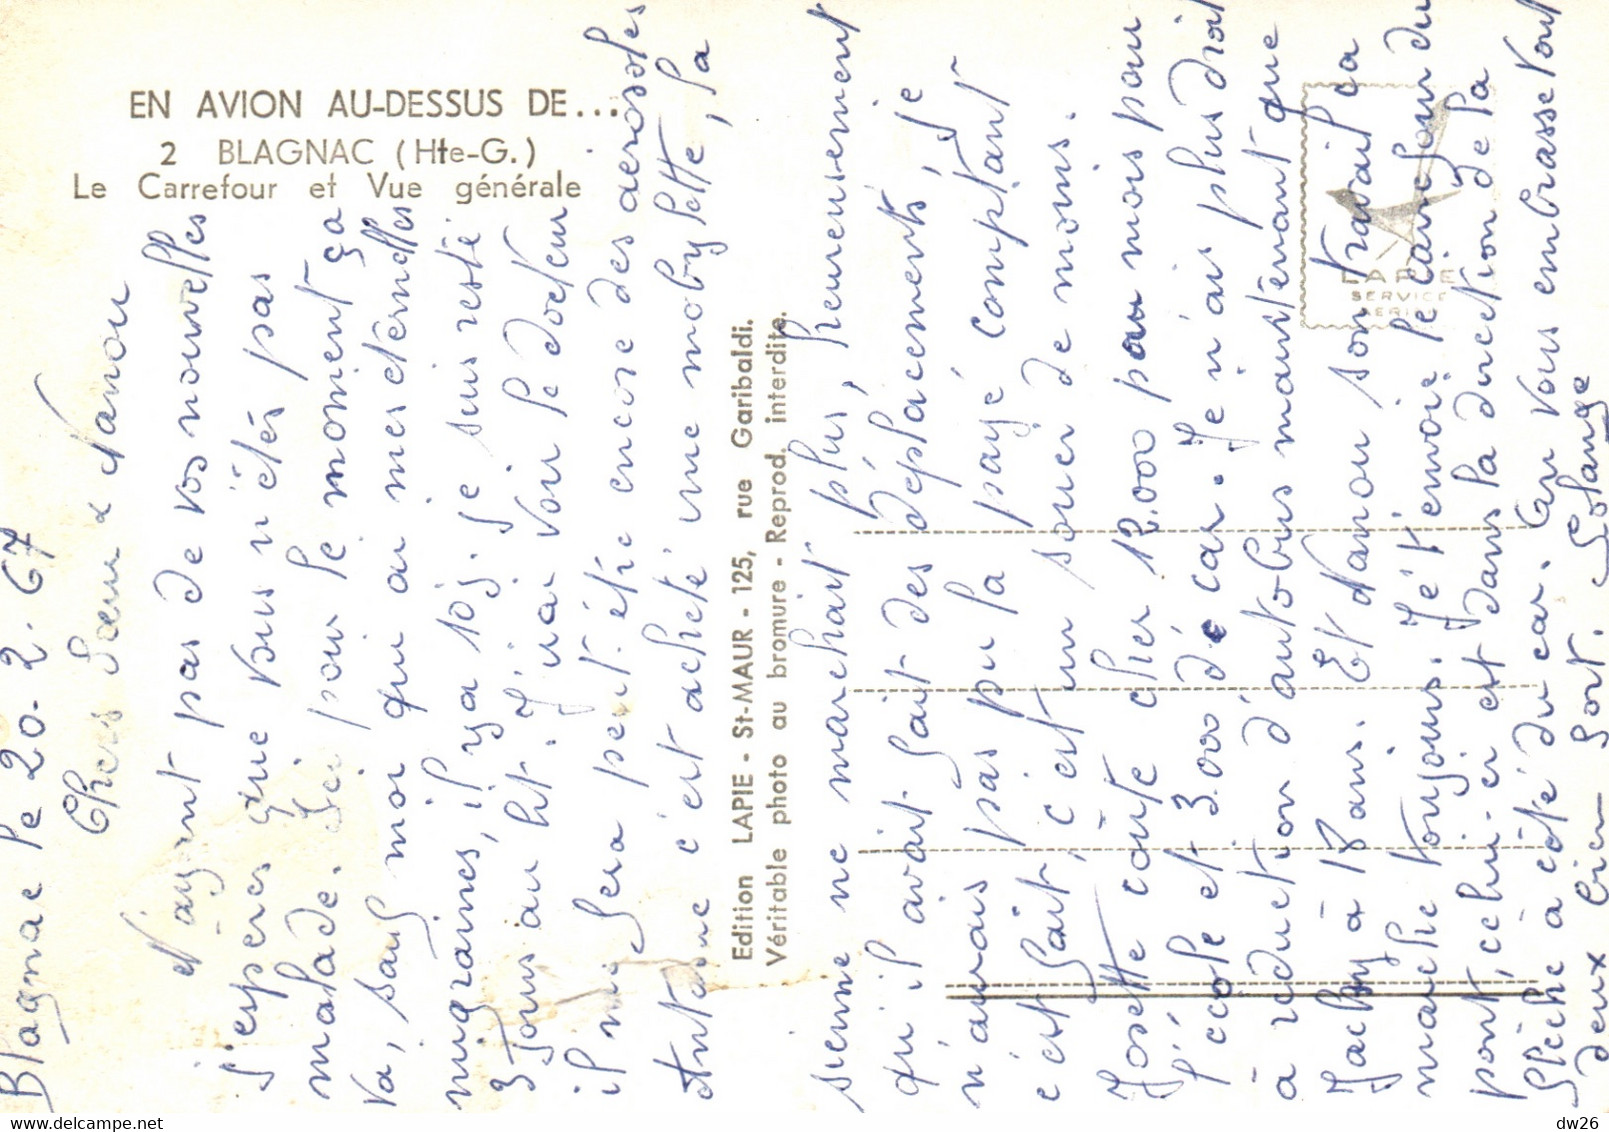 EN AVION AU-DESSUS DE...
2 BLAGNAC (Hte-G.)
Le Carrefour et Vue générale
Blagnac le 20.2.67
Chers Sœur & Nanou
N'ayant pas de vos nouvelles
j'espères que vous n'étés pas
malade. Ici pour le moment ça
va, sauf moi qui ai mes éternelles
migraines, il y a 10 j. je suis resté
3 jours au lit. J'irai voir le docteur
il me fera peut-être encore des aerosoles
Antoine c'est acheté une mobylette, la
Edition LAPIE - St-MAUR - 125, rue Garibaldi.
Véritable photo au bromure - Reprod. interdite.
sienne ne marchait plus, heureusement
qu'il avait fait des déplacements, je
n'aurais pas pu la payé comptant
c'est fait, c'est un soucier de moins.
Josette coûte cher 12.000 par mois pour
l'école et 3.000 de car. Je n'ais plus droit
à réduction d'autobus maintenant que
Jacky à 18 ans. Et Nanou son travail ça
marche toujours. Je t'envoie le carrefour du
pont, celui-ci est dans la direction de la
flèche à côté du car. On vous embrasse tout
deux bien fort. Solange
LAPIE
SERVICE
dw26